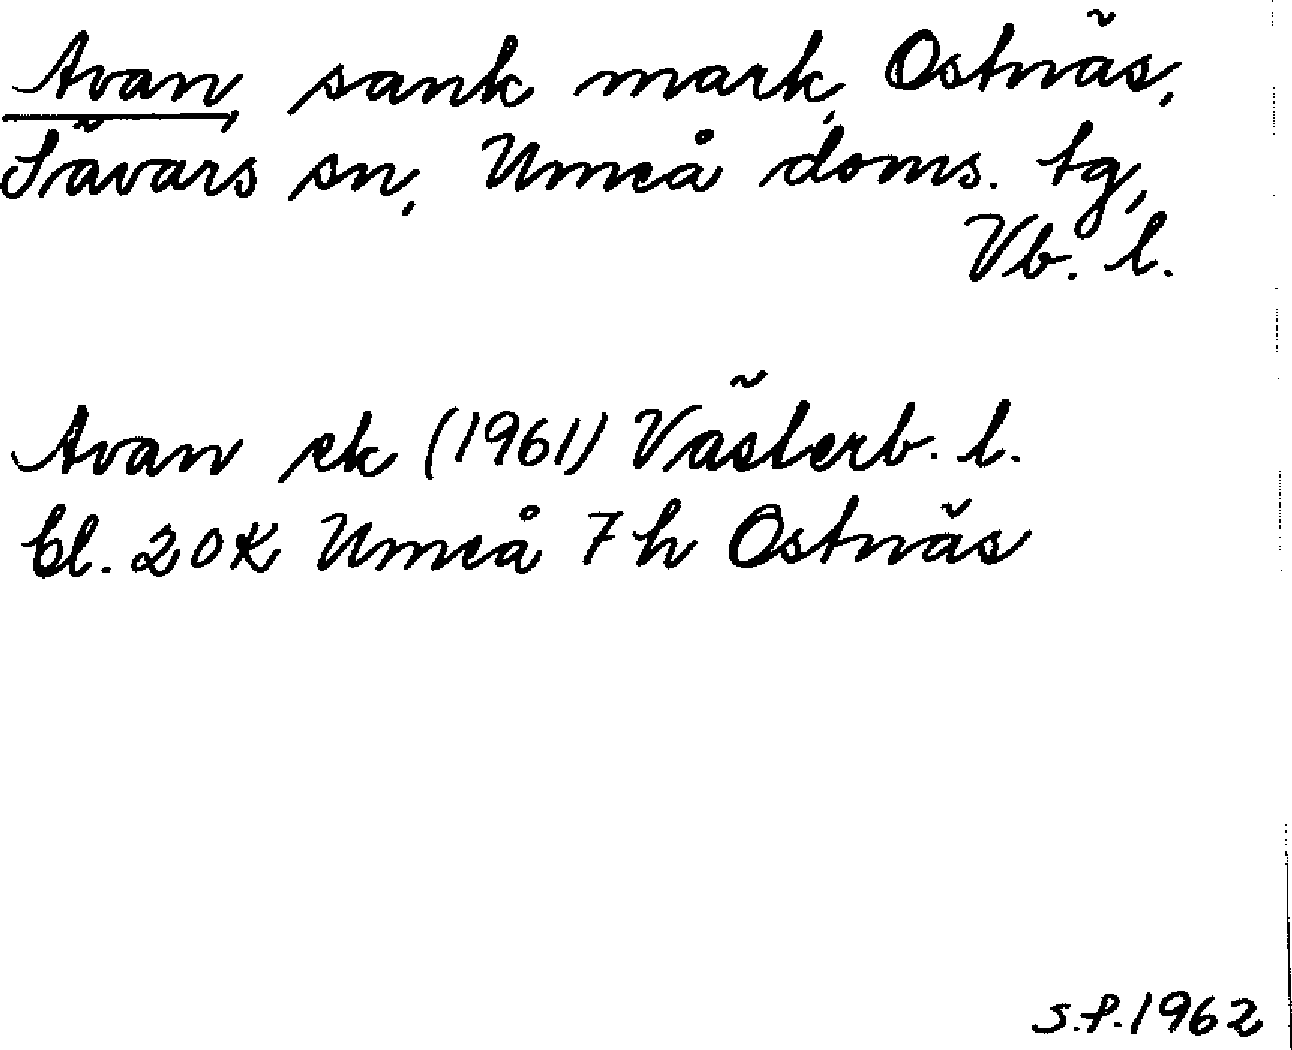 Avan, sank mark, Ostnäs,
Sävars sn, Umeå doms. tg,
Vb. l.
Avan ek (1961) Västerb. l.
bl. 20K Umeå 7h Ostnäs
S.P. 1962